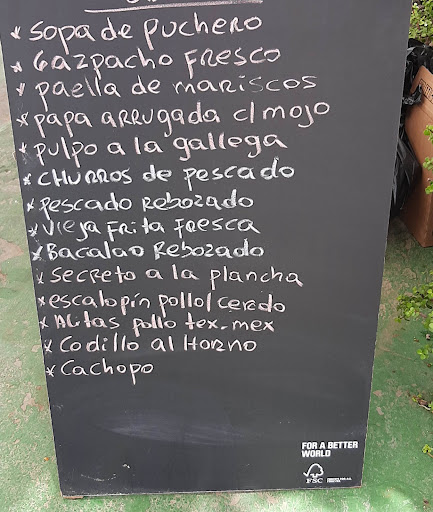 * sopa de puchero
* Gazpacho fresco
* paella de mariscos
* papa arrugada c/ mojo
* pulpo a la gallega
* churros de pescado
* pescado Rebozado
* Vieja Frita Fresca
* Bacalao Rebozado
* secreto a la plancha
* escalopin pollo/cerdo
* Alitas pollo tex-mex
* Codillo al Horno
* Cachopo
FOR A BETTER
WORLD
FSC